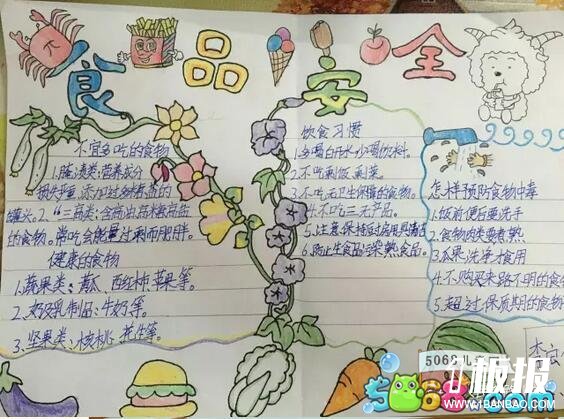 食品安全
不宜多吃的食物
1.腌渍类:营养成分
损失严重,添加过多糖盐的
罐头。2."三高类:含高油、高
的食物。常吃会能量过剩而肥胖。
健康的食物
1.蔬果类、黄瓜、西红柿、苹果等。
2.奶及乳制品:牛奶等。
3.坚果类、核桃、花生等。
饮食习惯
1.多喝白开水少喝饮料。
2.不吃剩饭、剩菜。
3.不吃无卫生保障的食物。
4.不吃三无产品。
5.注意保持厨房用具清洁
6.防止生食品污染熟食品。
怎样预防食物中毒
1.饭前便后要洗手
2.食物肉类要煮熟
3.瓜果洗净才食用
4.不购买来路不明的食物
5.超过保质期的食物
5068儿
板报
5068.com
www.1BANBAO.com